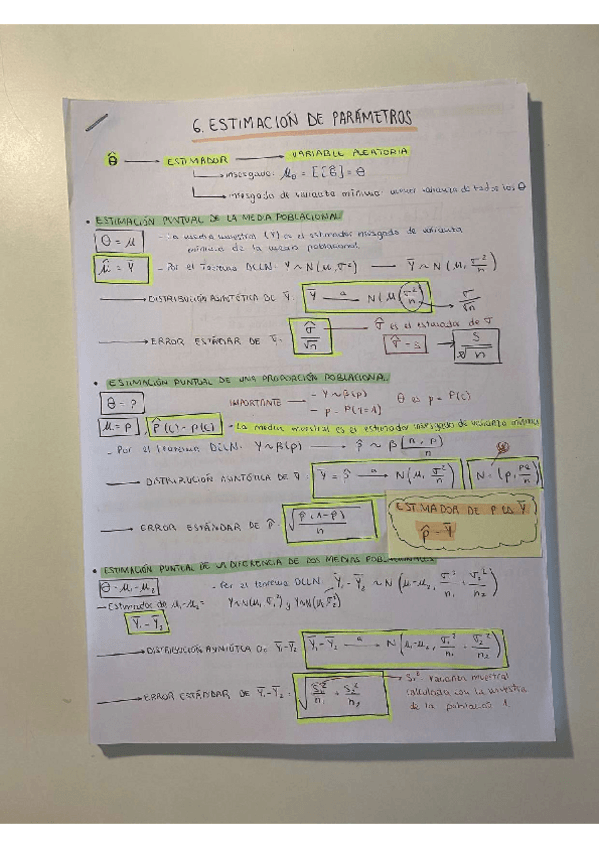 6. ESTIMACIÓN DE PARÁMETROS
θ̂ → ESTIMADOR → VARIABLE ALEATORIA
insesgado:
insesgado de varianza mínima: menor varianza de todos los θ
• ESTIMACIÓN PUNTUAL DE LA MEDIA POBLACIONAL
θ = μ - La media muestral (Y) es el estimador insesgado de varianza
mínima de la media poblacional.
μ̂ = Ȳ - Por el Teorema DCLN: Y ~ N(μ, σ²) → Ȳ ~ N(μ, σ²/n)
→ DISTRIBUCIÓN ASINTÓTICA DE Ȳ: Ȳ →a N(μ, σ²/n) → σ/√n
→ ERROR ESTÁNDAR DE Ȳ: σ̂/√n → σ̂ es el estimador de σ
σ̂ = S → S/√n
• ESTIMACIÓN PUNTUAL DE UNA PROPORCIÓN POBLACIONAL
θ = ? IMPORTANTE - Y~B(p) θ es p = P(C)
- p = P(Y=1)
μ = p, P̂(C) = p(C) - La media muestral es el estimador insesgado de varianza mínima
- Por el Teorema DCLN: Y~B(p) → p̂ ~ B(n, p)
→ DISTRIBUCIÓN ASINTÓTICA DE Ȳ: Ȳ = p̂ →a N(μ, σ²/n) N (p, pq/n)
ESTIMADOR DE P ES Ȳ
p̂ = Ȳ
→ ERROR ESTÁNDAR DE p̂:
• ESTIMACIÓN PUNTUAL DE LA DIFERENCIA DE DOS MEDIAS POBLACIONALES
θ = μ₁ - μ₂ - Por el teorema DCLN: Ȳ₁ - Ȳ₂ ~ N(μ₁-μ₂, σ₁²/n₁ + σ₂²/n₂)
- Estimador de μ₁-μ₂ =
Ȳ₁ - Ȳ₂
→ DISTRIBUCIÓN ASINTÓTICA DE Ȳ₁-Ȳ₂: Ȳ₁-Ȳ₂ →a N(μ₁-μ₂, σ₁²/n₁ + σ₂²/n₂)
→ ERROR ESTÁNDAR DE Ȳ₁-Ȳ₂: √(S₁²/n₁ + S₂²/n₂) → S₁² varianza muestral
calculada con la muestra
de la población 1